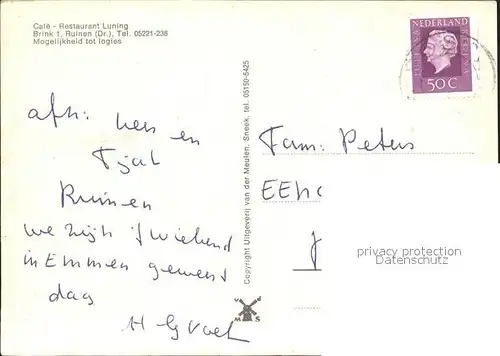 Café - Restaurant Luning
Brink 1, Ruinen (Dr.), Tel. 05221-238
Mogelijkheid tot logies
NEDERLAND
50 C
Copyright Uitgeverij van der Meulen, Sneek, tel. 05150-5425
afz: en
Ruinen
we zijn
in Emmen geweest
dag
Fam: Peters
privacy protection
Datenschutz